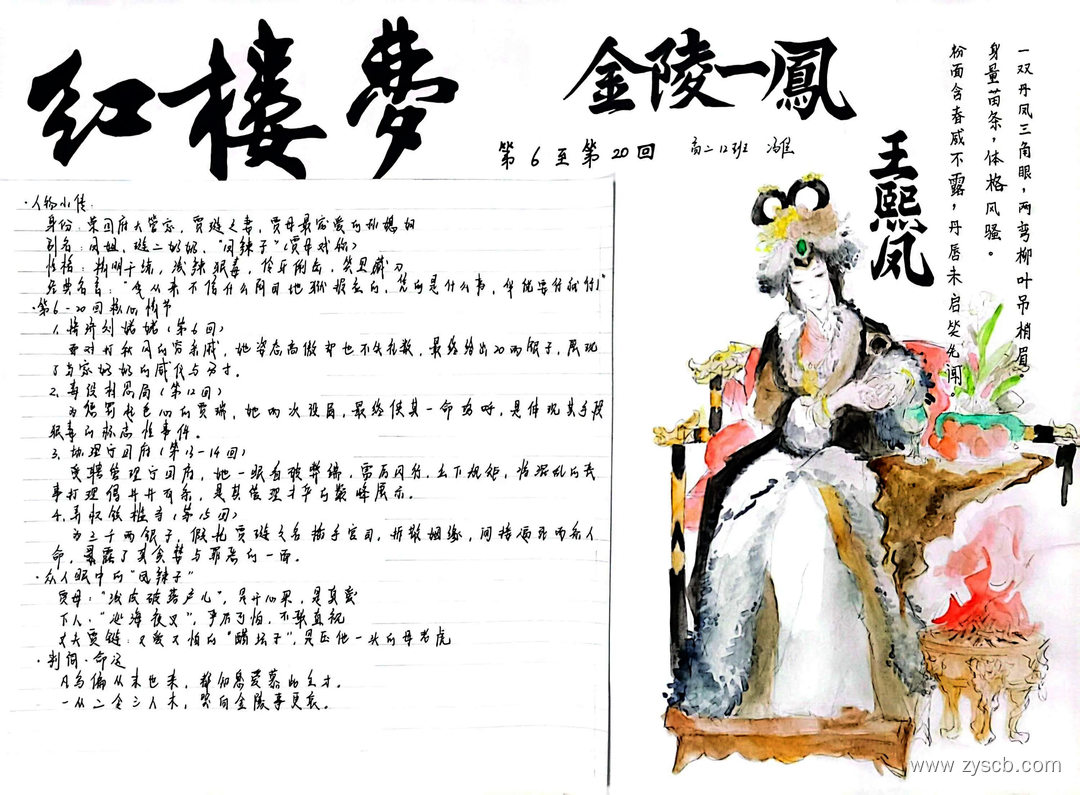 红楼梦
金陵一鳳
第6至第20回
高二12班
王熙凤
一双丹凤三角眼，两弯柳叶吊梢眉
身量苗条，体格风骚。
粉面含春威不露，丹唇未启笑先闻。
·人物小传：
身份：荣国府大管家，贾琏之妻，贾母最宠爱的孙媳妇
别名：凤姐，琏二奶奶，"凤辣子"（贾母戏称）
性格：精明干练，泼辣狠毒，伶牙俐齿，笑里藏刀
经典名言："我从来不信什么阴司地狱报应的，凭是什么事，
·第6-20回核心情节
1. 接济刘姥姥（第6回）
面对打秋风的穷亲戚，她姿态高傲却也不失礼数，最终给出20两银子，展现
了当家奶奶的威仪与分寸。
2. 毒设相思局（第12回）
为惩罚起色心的贾瑞，她两次设局，最终使其一命呜呼，是体现其手段
狠毒的标志性事件。
3. 协理宁国府（第13-14回）
受聘管理宁国府，她一眼看破弊端，雷厉风行，立下规矩，将混乱的丧
事打理得井井有条，是其管理才华的巅峰展示。
4. 弄权铁槛寺（第15回）
为三千两银子，假托贾琏之名插手官司，拆散姻缘，间接逼死两条人
命，暴露了其贪婪与罪恶的一面。
·众人眼中的"凤辣子"
贾母："泼皮破落户儿"，是开心果，是真爱
下人："巡海夜叉"，
丈夫贾链：又爱又怕的"醋坛子"，是压他一头的母老虎
·判词·命运
凡鸟偏从末世来，都知爱慕此生才。
一从二令三人木，哭向金陵事更哀。
www.zyscb.com